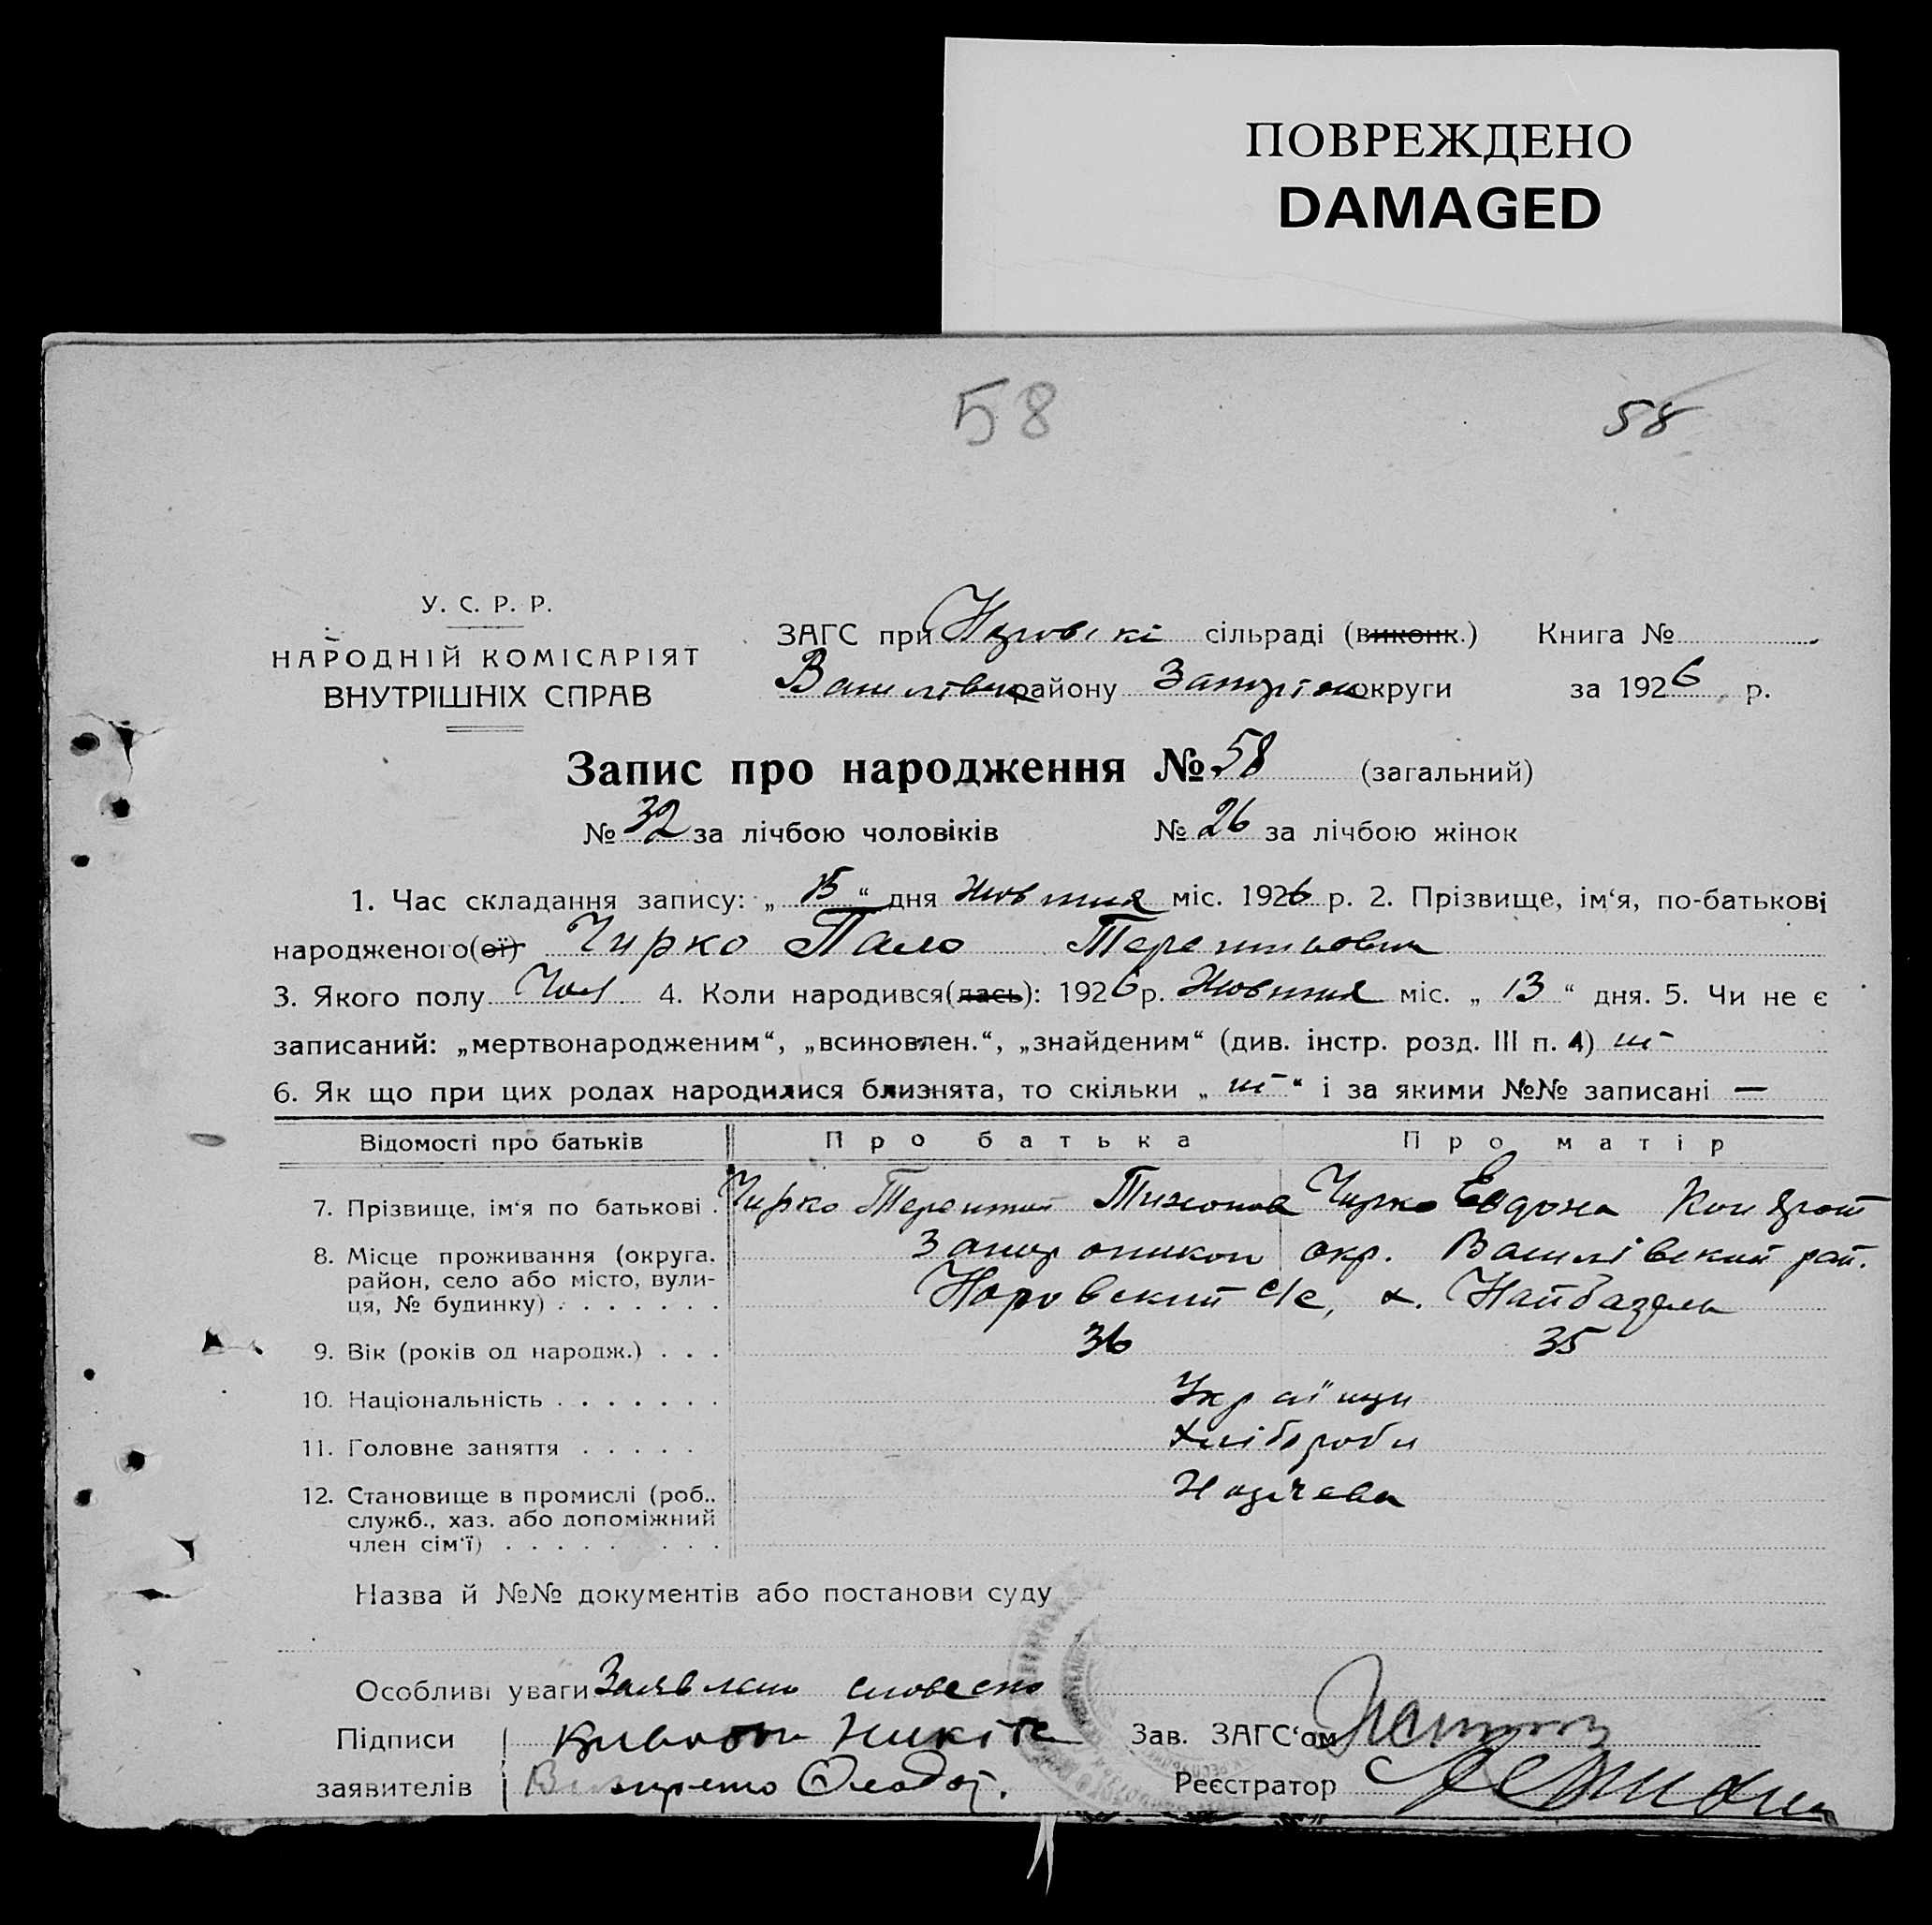 ПОВРЕЖДЕНО
DAMAGED
58
58
У. С. Р. Р.
НАРОДНІЙ КОМІСАРІЯТ
ВНУТРІШНІХ СПРАВ
ЗАГС при сільраді (виконк.) Книга №
району округи за 1926 р.
Запис про народження № 58 (загальний)
№ 32 за лічбою чоловіків № 26 за лічбою жінок
1. Час складання запису: „ 15 “ дня Жовтня міс. 1926 р. 2. Прізвище, ім‘я, по-батькові
народженого(ої) Чирко Терентиевич
3. Якого полу Чол 4. Коли народився(лась): 1926 р. Жовтня міс. „ 13 “ дня. 5. Чи не є
записаний: „мертвонародженим“, „всиновлен.“, „знайденим“ (див. інстр. розд. III п. 4) ні
6. Як що при цих родах народилися близнята, то скільки „ ні “ і за якими №№ записані —
Відомості про батьків Про батька Про матір
7. Прізвище, ім‘я по батькові . Чирко Терентий Тихонов Чирко Евдоха Кондрат
8. Місце проживання (округа, район, село або місто, вулиця, № будинку) . . . . . . . окр. Василівский рай.
с/с, х.
9. Вік (років од народж.) . . . 36 35
10. Національність . . . . . . . Українци
11. Головне заняття . . . . . Хлібороби
12. Становище в промислі (роб.,
служб., хаз. або допоміжний
член сім‘ї) . . . . . . . . .
Назва й №№ документів або постанови суду
Особливі уваги Заявлено словесно
Підписи Никіта Зав. ЗАГС‘ом
заявителів Реєстратор